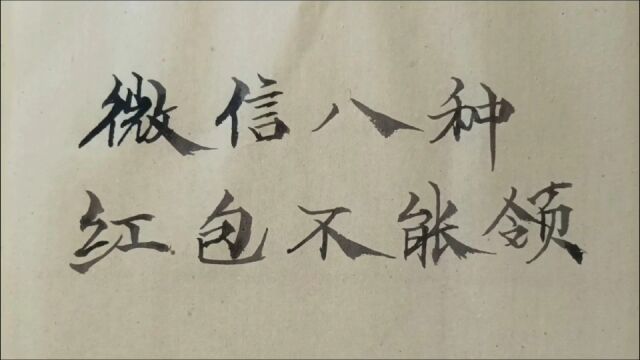 微信八种
红包不能领